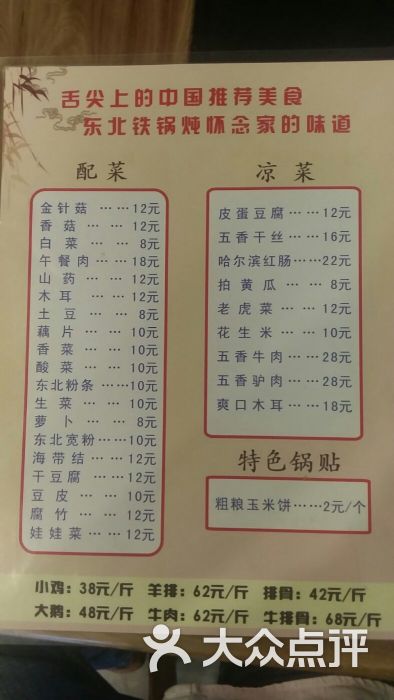 舌尖上的中国推荐美食
东北铁锅炖怀念家的味道
配菜
金针菇……12元
香菇……12元
白菜……8元
午餐肉……18元
山药……12元
木耳……12元
土豆……8元
藕片……10元
香菜……10元
酸菜……10元
东北粉条……10元
生菜……10元
萝卜……8元
东北宽粉……10元
海带结……12元
干豆腐……12元
豆皮……10元
腐竹……12元
娃娃菜……12元
凉菜
皮蛋豆腐……12元
五香干丝……16元
哈尔滨红肠……22元
拍黄瓜……8元
老虎菜……12元
花生米……10元
五香牛肉……28元
五香驴肉……28元
爽口木耳……18元
特色锅贴
粗粮玉米饼……2元/个
小鸡：38元/斤 羊排：62元/斤 排骨：42元/斤
大鹅：48元/斤 牛肉：62元/斤 牛排骨：68元/斤
大众点评